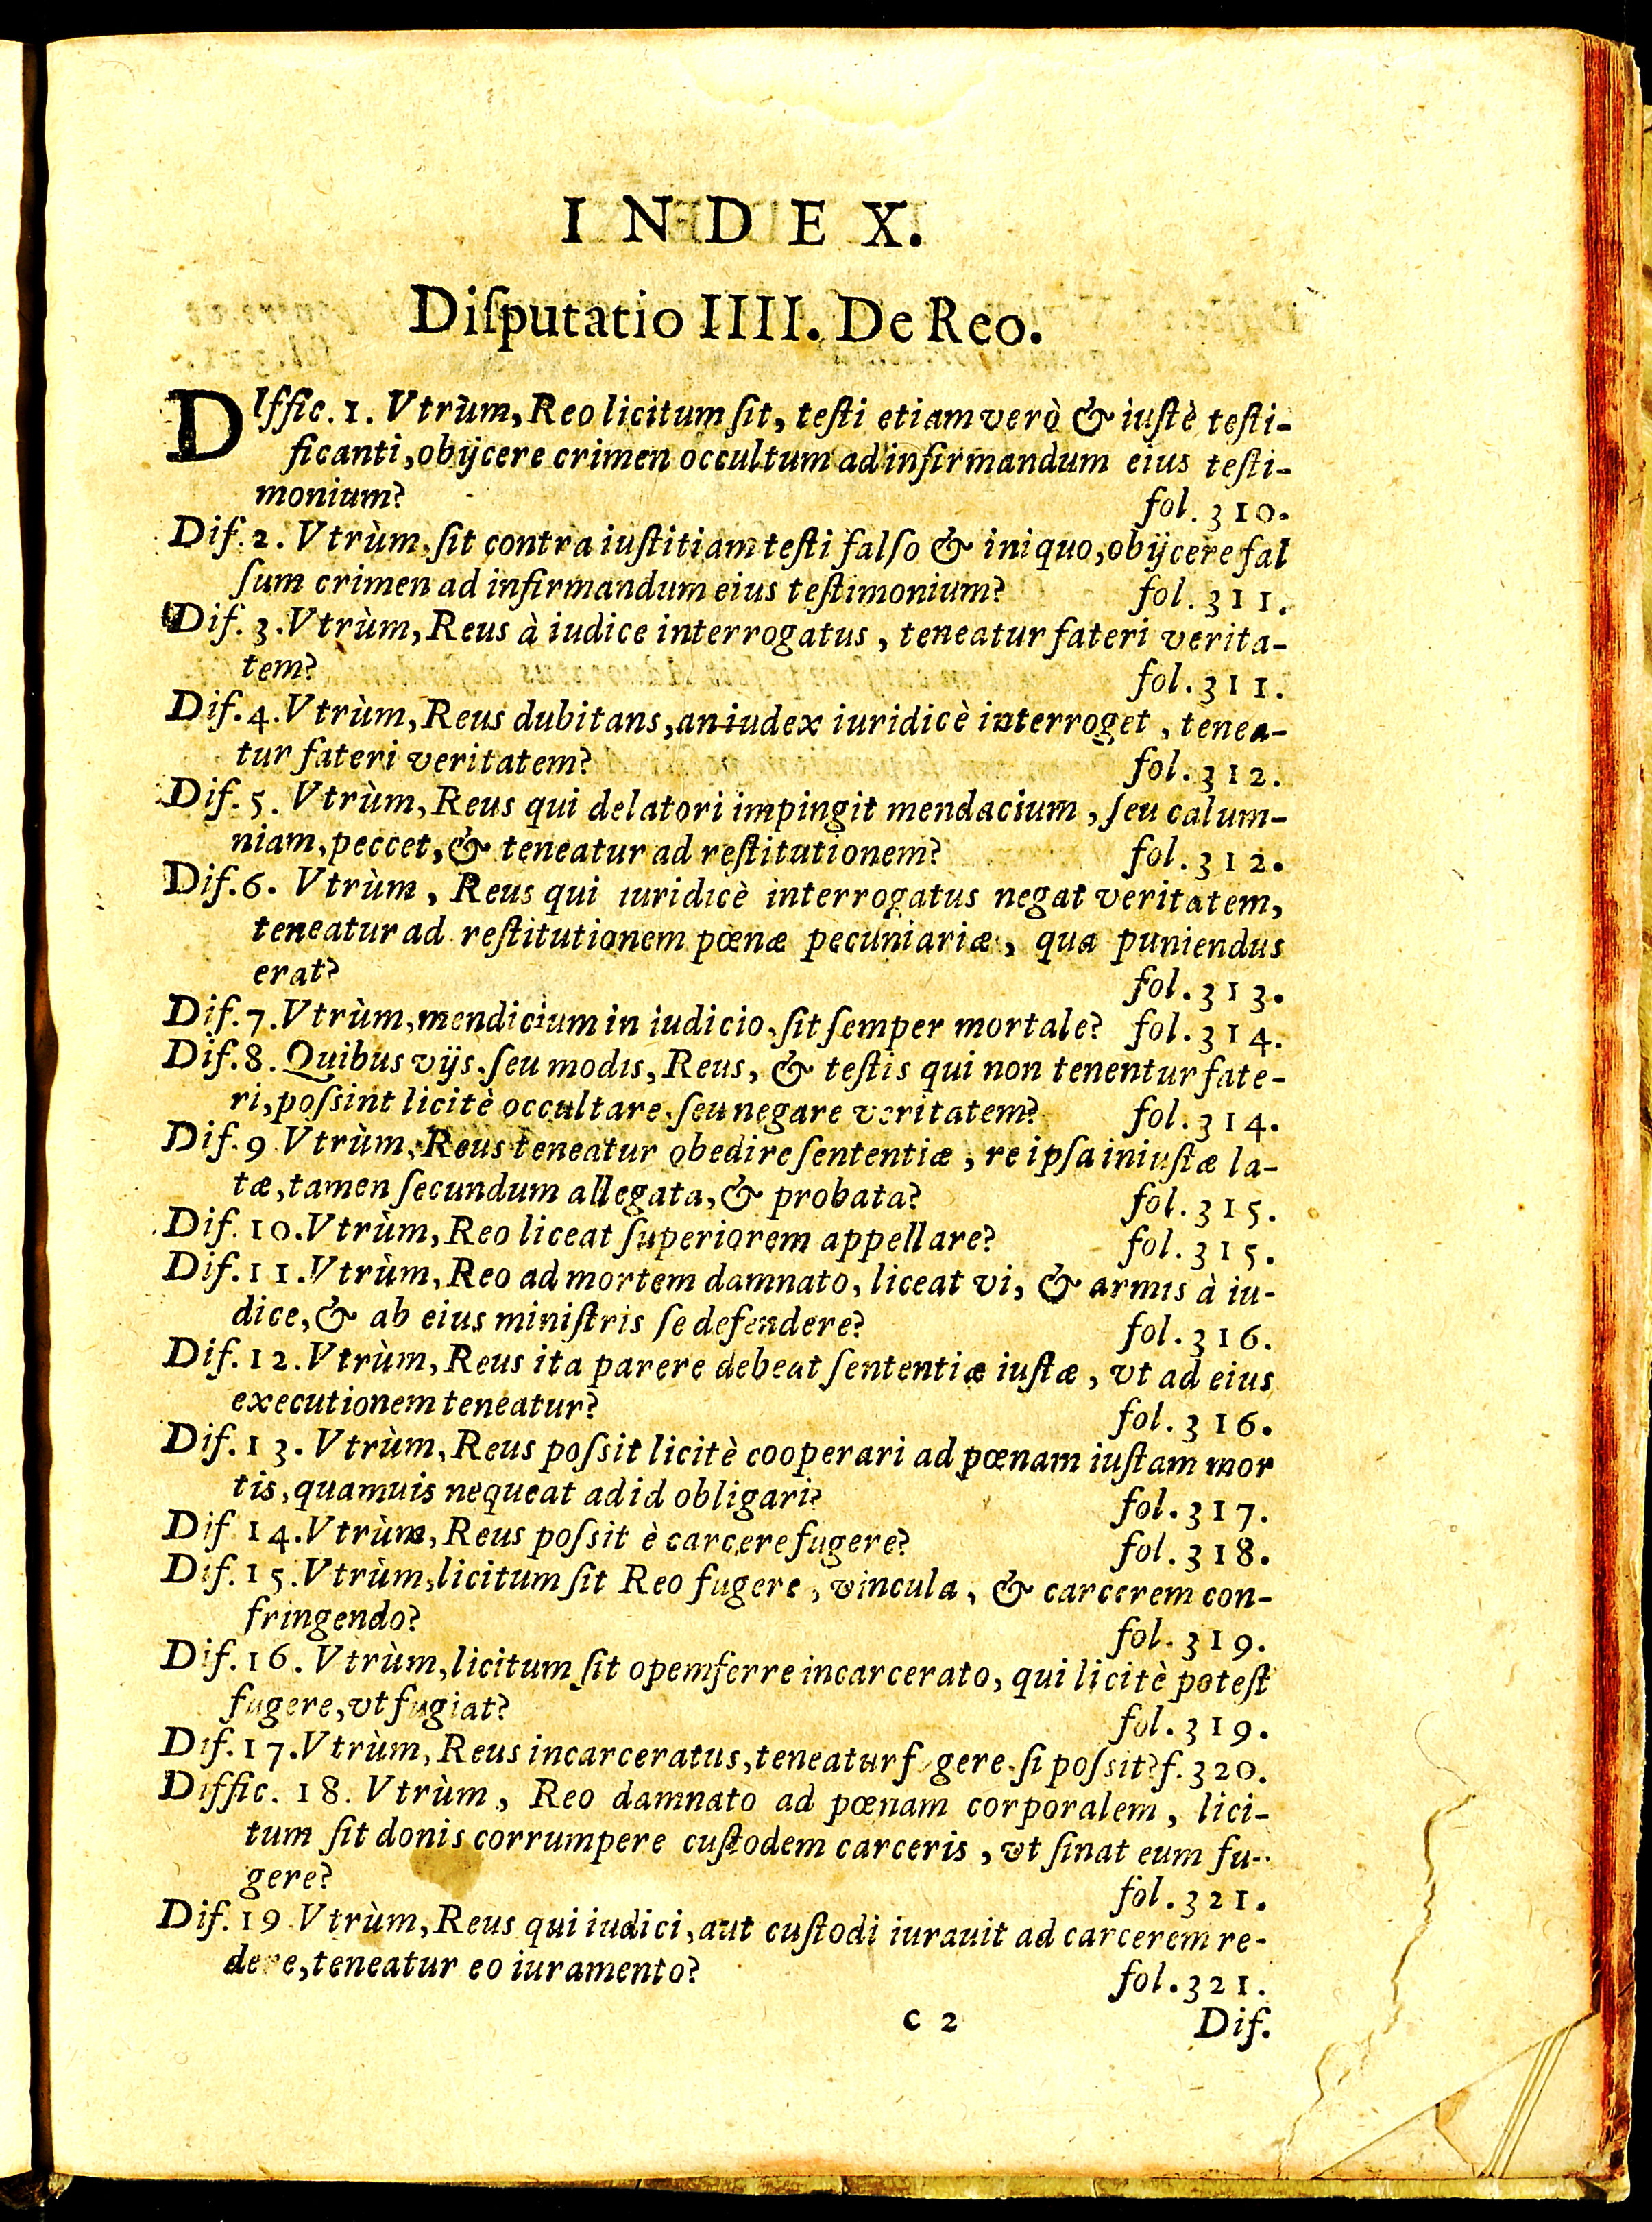 INDEX.
Diſputatio IIII. De Reo.
DIffic. 1. Vtrùm, Reo licitum ſit, teſti etiam verò & iuſtè teſti-
ficanti, obijcere crimen occultum ad infirmandum eius teſti-
monium? fol. 310.
Dif. 2. Vtrùm, ſit contra iuſtitiam teſti falſo & iniquo, obijcere fal
ſum crimen ad infirmandum eius teſtimonium? fol. 311.
Dif. 3. Vtrùm, Reus à iudice interrogatus, teneatur fateri verita-
tem? fol. 311.
Dif. 4. Vtrùm, Reus dubitans, an iudex iuridicè interroget, tenea-
tur fateri veritatem? fol. 312.
Dif. 5. Vtrùm, Reus qui delatori impingit mendacium, ſeu calum-
niam, peccet, & teneatur ad reſtitutionem? fol. 312.
Dif. 6. Vtrùm, Reus qui iuridicè interrogatus negat veritatem,
teneatur ad reſtitutionem pœnæ pecuniariæ, qua puniendus
erat? fol. 313.
Dif. 7. Vtrùm, mendicium in iudicio, ſit ſemper mortale? fol. 314.
Dif. 8. Quibus vijs, ſeu modis, Reus, & teſtis qui non tenentur fate-
ri, poſsint licitè occultare, ſeu negare veritatem? fol. 314.
Dif. 9 Vtrùm, Reus teneatur obedire ſententiæ, re ipſa iniuſtæ la-
tæ, tamen ſecundum allegata, & probata? fol. 315.
Dif. 10. Vtrùm, Reo liceat ſuperiorem appellare? fol. 315.
Dif. 11. Vtrùm, Reo ad mortem damnato, liceat vi, & armis à iu-
dice, & ab eius miniſtris ſe defendere? fol. 316.
Dif. 12. Vtrùm, Reus ita parere debeat ſententiæ iuſtæ, vt ad eius
executionem teneatur? fol. 316.
Dif. 13. Vtrùm, Reus poſsit licitè cooperari ad pœnam iuſtam mor
tis, quamuis nequeat ad id obligari? fol. 317.
Dif 14. Vtrùm, Reus poſsit è carcere fugere? fol. 318.
Dif. 15. Vtrùm, licitum ſit Reo fugere, vincula, & carcerem con-
fringendo? fol. 319.
Dif. 16. Vtrùm, licitum ſit opem ferre incarcerato, qui licitè poteſt
fugere, vt fugiat? fol. 319.
Dif. 17. Vtrùm, Reus incarceratus, teneatur f gere, ſi poſsit? f. 320.
Diffic. 18. Vtrùm, Reo damnato ad pœnam corporalem, lici-
tum ſit donis corrumpere cuſtodem carceris, vt ſinat eum fu-
gere? fol. 321.
Dif. 19 Vtrùm, Reus qui iudici, aut cuſtodi iurauit ad carcerem re-
dere, teneatur eo iuramento? fol. 321.
c 2 Dif.